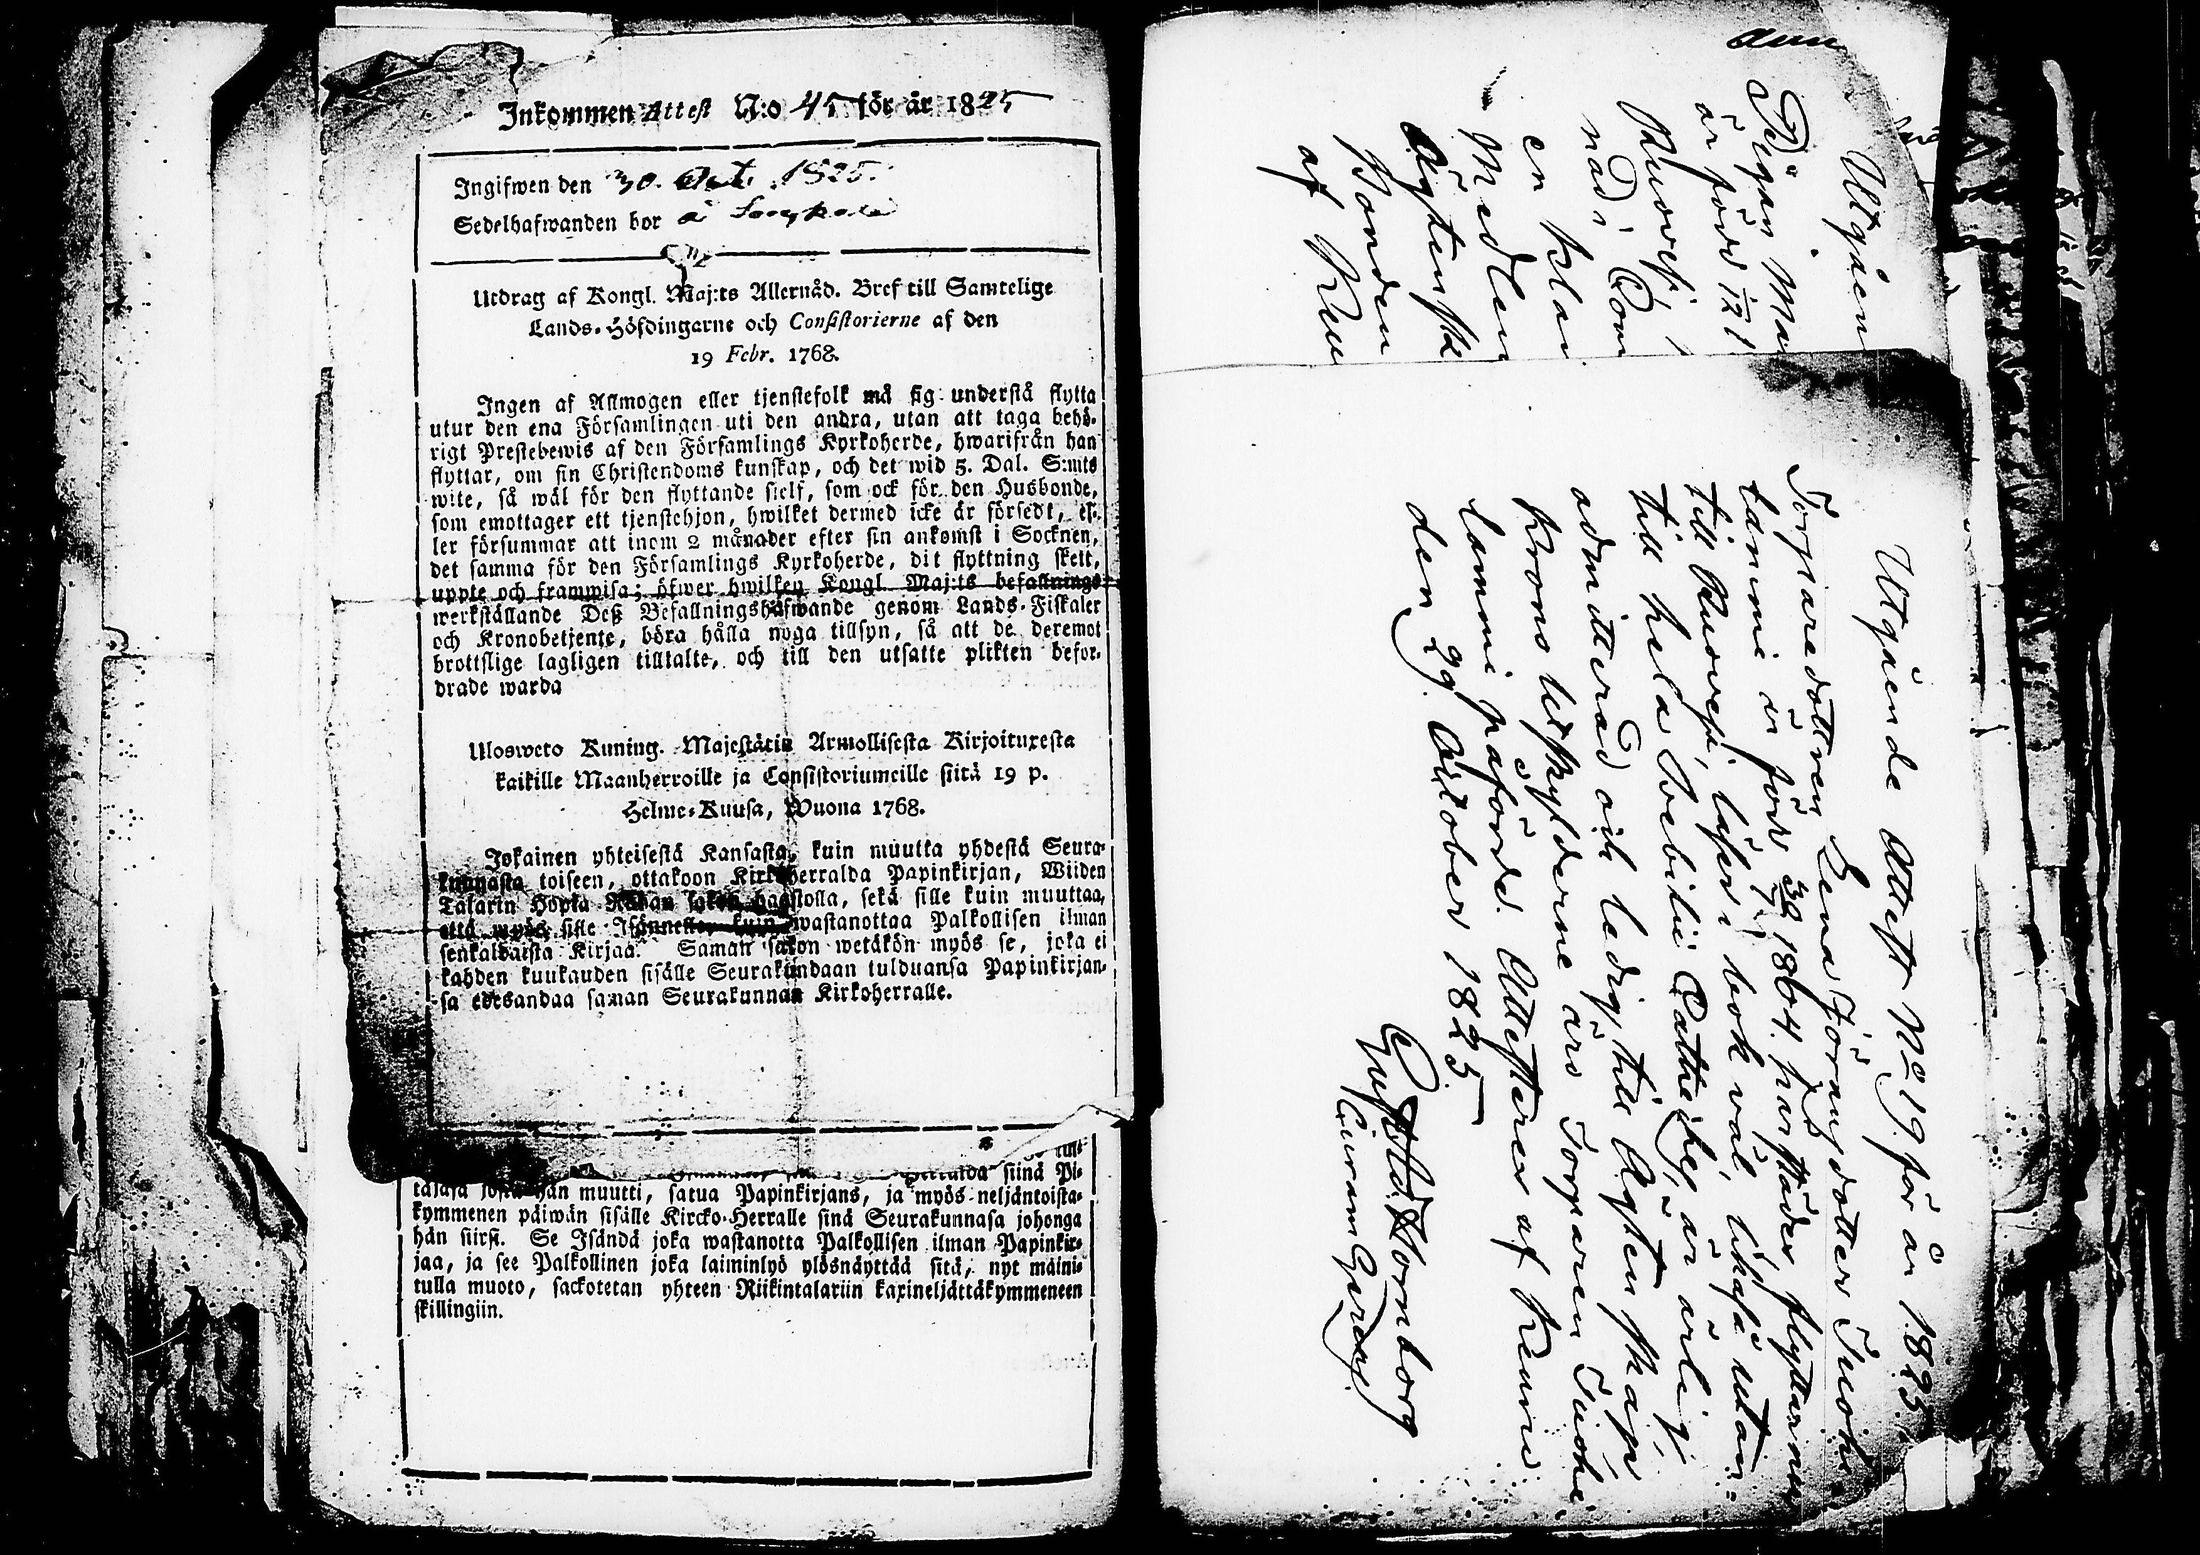 Inkommen Attest N:o 45 för år 1825
Ingifwen den 30. Oct. 1825.
Sedelhafwanden bor å
Utdrag af Kongl. Maj:ts Allernåd. Bref till Samtelige
Lands-Höfdingarne och Consistorierne af den
19 Febr. 1768.
Ingen af Allmogen eller tjenstefolk må sig understå flytta
utur den ena Församlingen uti den andra, utan att taga behö-
rigt Prestebewis af den Församlings Kyrkoherde, hwarifrån han
flyttar, om sin Christendoms kunskap, och det wid 5. Dal. S:mts
wite, så wäl för den flyttande sielf, som ock för den Husbonde,
som emottager ett tjenstehjon, hwilket dermed icke är försedt, el-
ler försummar att inom 2 månader efter sin ankomst i Socknen,
det samma för den Församlings Kyrkoherde, dit flyttning skett,
uppte och framwisa; öfwer hwilken Kongl. Maj:ts befallnings
werkställande Deß Befallningshafwande genom Lands-Fiskaler
och Kronobetjente, böra hålla noga tillsyn, så att de deremot
brottslige lagligen tilltalte, och till den utsatte plikten befor-
drade warda
Ulosweto Kuning. Majestätin Armollisesta Kirjoituxesta
kaikille Maanherroille ja Consistoriumeille siitä 19 p.
Helme-Kuusa, Wuona 1768.
Jokainen yhteisestä Kansasta, kuin muutta yhdestä Seura-
kunnasta toiseen, ottakoon Kirkoherralda Papinkirjan, Wiiden
Talarin Hopia Rahan sakon haastolla, sekä sille kuin muuttaa,
että myös sille Isännelle, kuin wastanottaa Palkollisen ilman
senkaldaista Kirjaa. Saman sakon wetäkön myös se, joka ei
kahden kuukauden sisälle Seurakundaan tulduansa Papinkirjan-
sa edesandaa saman Seurakunnan Kirkoherralle.
siinä Pi-
täjäsä josta hän muutti, satua Papinkirjans, ja myös neljäntoista-
kymmenen päiwän sisälle Kircko-Herralle sinä Seurakunnasa johonga
hän siirsi. Se Isändä joka wastanotta Palkollisen ilman Papinkir-
jaa, ja see Palkollinen joka laiminlyö ylösnäyttää sitä, nyt maini-
tulla muoto, sackotetan yhteen Riikintalariin kaxineljättäkymmeneen
skillingiin.
Utgåen
Pigan Ma
är född 12/1
Ruovesi,
nad i Com
en klan
Medlen
Ägtenska
Bonden
af Ruu
Utgående Attest No 19. för år 1825.
Torparedottren Lena Jöransdotter Tuohi
är född 30/7 1804. härstädes flyttar nu
till Ruovesi, läser i bok väl, likaså utan-
till hela Svebilii Cathekes, är ärlig
admitterad och ledig till Ägtenskap
Krono utskylderne äro Torparen Tuohi
lammi påförde. Attesteras af Keuru
den 29 October 1825
Gust. Ad. Hornborg
Curam Gerens.